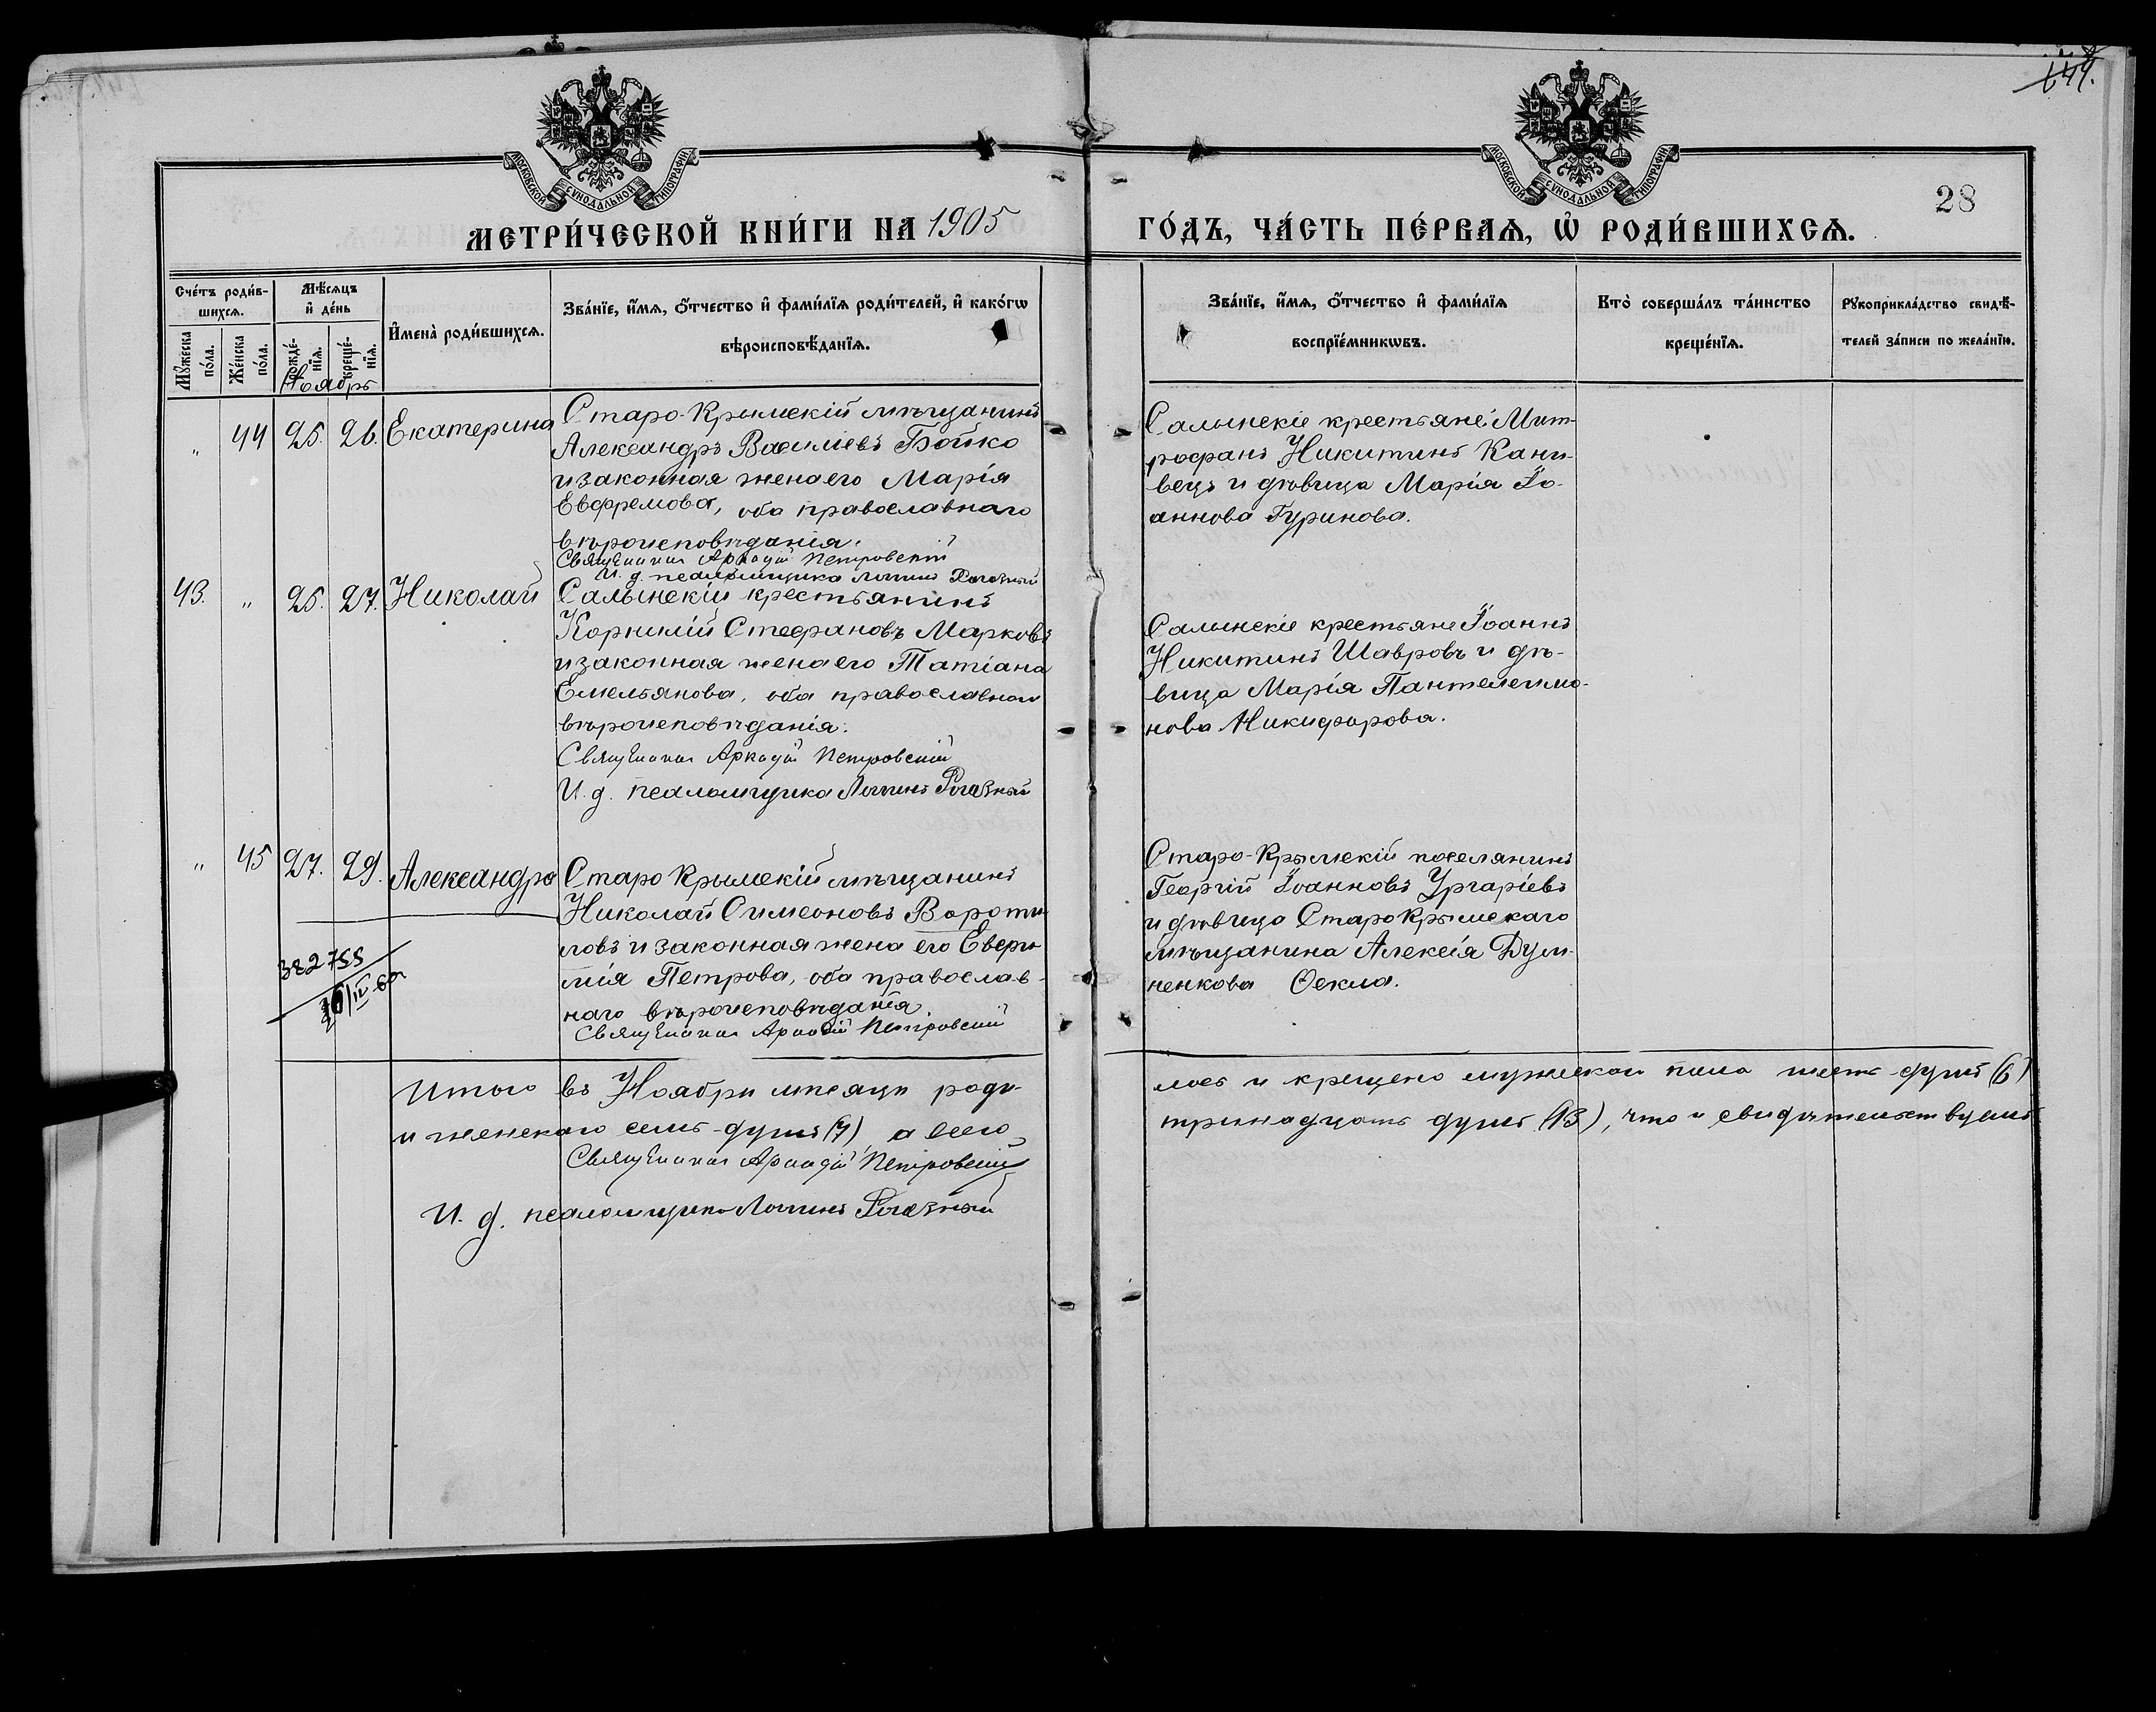 144.
28
МОСКОВСКОЙ СѴНОДАЛЬНОЙ ТИПОГРАФІИ
МОСКОВСКОЙ СѴНОДАЛЬНОЙ ТИПОГРАФІИ
МЕТРИ́ЧЕСКОЙ КНИ́ГИ НА 1905
ГО́ДЪ, ЧА́СТЬ ПЕ́РВАѦ, Ѡ҆ РОДИ́ВШИХСѦ.
Сче́тъ роди́в-
шихсѧ.
Мꙋ́жеска по́ла.
Же́нска по́ла.
Мѣ́сѧцъ
и҆ де́нь
рожде́-
нїѧ.
креще́-
нїѧ.
И҆мена̀ роди́вшихсѧ.
Зва́нїе, и҆́мѧ, ѻ҆́тчество и҆ фами́лїѧ роди́телей, и҆ како́гѡ
вѣроисповѣ́данїѧ.
Зва́нїе, и҆́мѧ, ѻ҆́тчество и҆ фами́лїѧ
воспрїе́мникѡвъ.
Кто̀ соверша́лъ та́инство
креще́нїѧ.
Рꙋкоприкла́дство свидѣ́-
телей за́писи по жела́нїю.
Ноябрь
„ 44 25. 26. Екатерина
Старо-Крымскій мѣщанинъ
Александръ Васильевъ Бойко
и законная жена его Марія
Евфремова, оба православнаго
вѣроисповѣданія.
Священникъ Аркадій Петровскій
И. д. псаломщика Логгинъ
Салынскіе крестьяне: Мит-
рофанъ Никитинъ Кани-
вецъ и дѣвица Марія Іо-
аннова Гуринова.
43. „ 25. 27. Николай
Салынскій крестьянинъ
Корнилій Стефановъ Марковъ
и законная жена его Татіана
Емельянова, оба православнаго
вѣроисповѣданія.
Священникъ Аркадій Петровскій
И. д. псаломщика Логгинъ
Салынскіе крестьяне Іоаннъ
Никитинъ Шавровъ и дѣ-
вица Марія Пантелеимо-
нова Никифорова.
„ 45 27. 29. Александра
Старо Крымскій мѣщанинъ
Николай Симеоновъ Вороти-
ловъ и законная жена его Евфи-
мія Петрова, оба православ-
наго вѣроисповѣданія.
Священникъ Аркадій Петровскій
Старо-Крымскій поселянинъ
Георгій Іоанновъ Ургаріевъ
и дѣвица Старо Крымскаго
мѣщанина Алексія Дум-
ненкова Ѳекла.
382755
Итого въ Ноябрѣ мѣсяцѣ роди-
лось и крещено мужескаго пола шесть душъ (6)
и женскаго семь душъ (7), а всего
тринадцать душъ (13), что и свидѣтельствуемъ
Священникъ Аркадій Петровскій
И. д. псаломщика Логгинъ